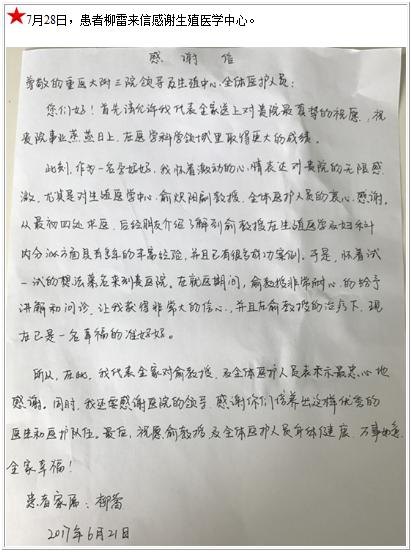 ★7月28日，患者柳雷来信感谢生殖医学中心。
感 谢 信
尊敬的重医大附三院领导及生殖中心全体医护人员：
您们好！首先请允许我代表全家送上对贵院最真挚的祝愿，祝
贵院事业蒸蒸日上，在医学科学领域里取得更大的成绩。
此刻，作为一名孕妈妈，我怀着激动的心情表达对贵院的无限感
激，尤其是对生殖医学中心，俞炽阳副教授，全体医护人员的衷心感谢。
从最初四处求医，后经朋友介绍了解到俞教授在生殖医学及妇科
内分泌方面具有多年的丰富经验，并且已有很多成功案例。于是，怀着试
一试的想法慕名来到贵医院。在就医期间，俞教授非常耐心的给予
讲解和问诊，让我获得非常大的信心，并且在俞教授的治疗下，现
在已是一名幸福的准妈妈。
所以，在此，我代表全家对俞教授，及全体医护人员表示最衷心地
感谢。同时，我还要感谢医院的领导，感谢你们培养出这样优秀的
医生和医护队伍。最后，祝愿俞教授及全体医护人员身体健康，万事如意，
全家幸福！
患者家属：柳雷
2017年6月21日